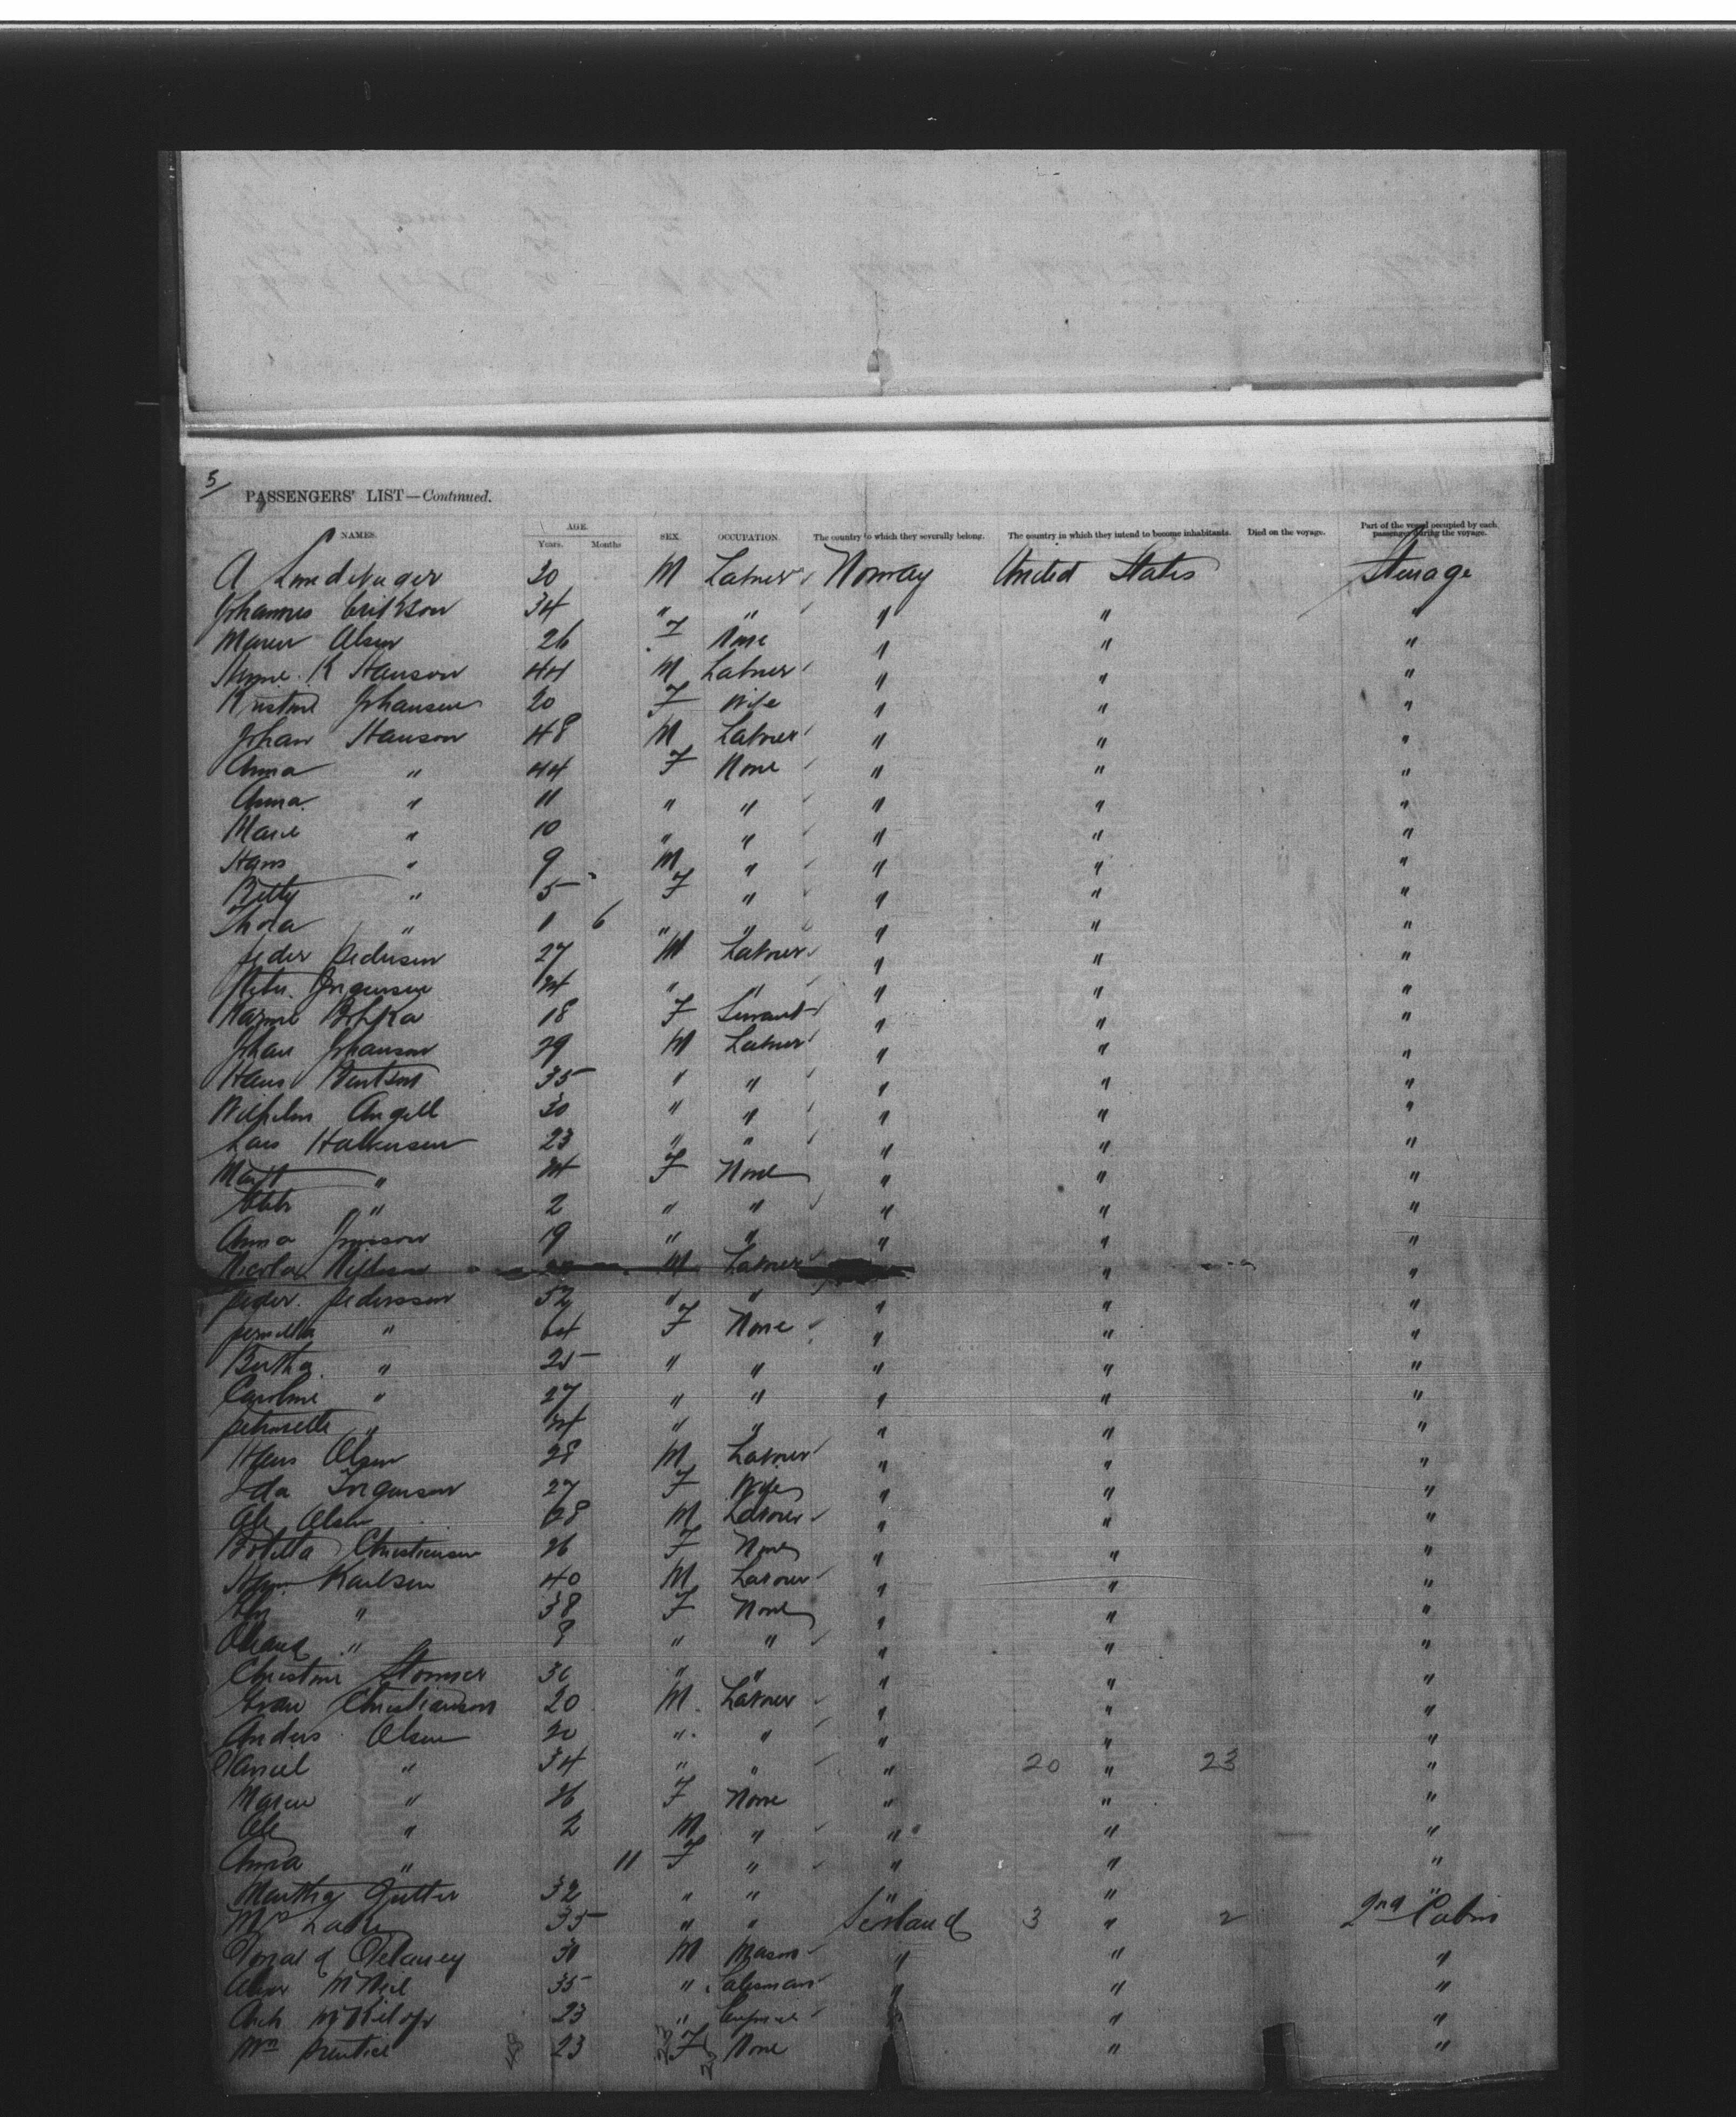 5
PASSENGERS' LIST—Continued.
NAMES. AGE. Years. Months SEX. OCCUPATION. The country to which they severally belong. The country in which they intend to become inhabitants. Died on the voyage. Part of the vessel occupied by each passenger during the voyage.
A 30 M Laborer Norway United States Steerage
Johannes Erikson 34 " " " " "
Maren Olsen 26 F None " " "
K Hanson 44 M Laborer " " "
Kristine Johansen 20 F Wife " " "
Johan Hanson 48 M Laborer " " "
Anna " 44 F None " " "
Anna " 11 " " " " "
Marie " 10 " " " " "
Hans " 9 M " " " "
Betty " 5 F " " " "
Thora " 1 6 " " " " "
Peder Pedersen 27 M Laborer " " "
Peter Jorgensen 24 " " " " "
18 F Servant " " "
Johan Johanson 29 M Laborer " " "
Hans Bentson 35 " " " " "
Wilhelm Angell 30 " " " " "
Lars Halvorsen 23 " " " " "
Marit " 24 F None " " "
" 2 " " " " "
Anna 19 " " " " "
Nicolai M Laborer " "
Peder Pedersson 52 " " " " "
Pernilla " 64 F None " " "
Bertha " 25 " " " " "
Caroline " 27 " " " " "
" 24 " " " " "
Hans Olsen 28 M Laborer " " "
Ida Jorgenson 27 F Wife " " "
Ole Olsen 28 M Laborer " " "
Botilla Christiensen 26 F None " " "
Karlsen 40 M Laborer " " "
" 38 F None " " "
" 9 " " " " "
Christine Stormer 30 " " " " "
Evan Christianson 20 M Laborer " " "
Anders Olsen 20 " " " " "
Daniel " 34 " " " 20 " 23 "
Maren " 26 F None " " "
Ole " 2 M " " " "
Anna " 11 F " " " "
Martha 32 " " " " "
Mrs 35 " " 3 " 2 2nd Cabin
Donald Delaney 30 M Mason " " "
Alexr McNeil 35 " Salesman " " "
Arch McKillop 23 " " " "
Mrs Prentice 23 F None " "